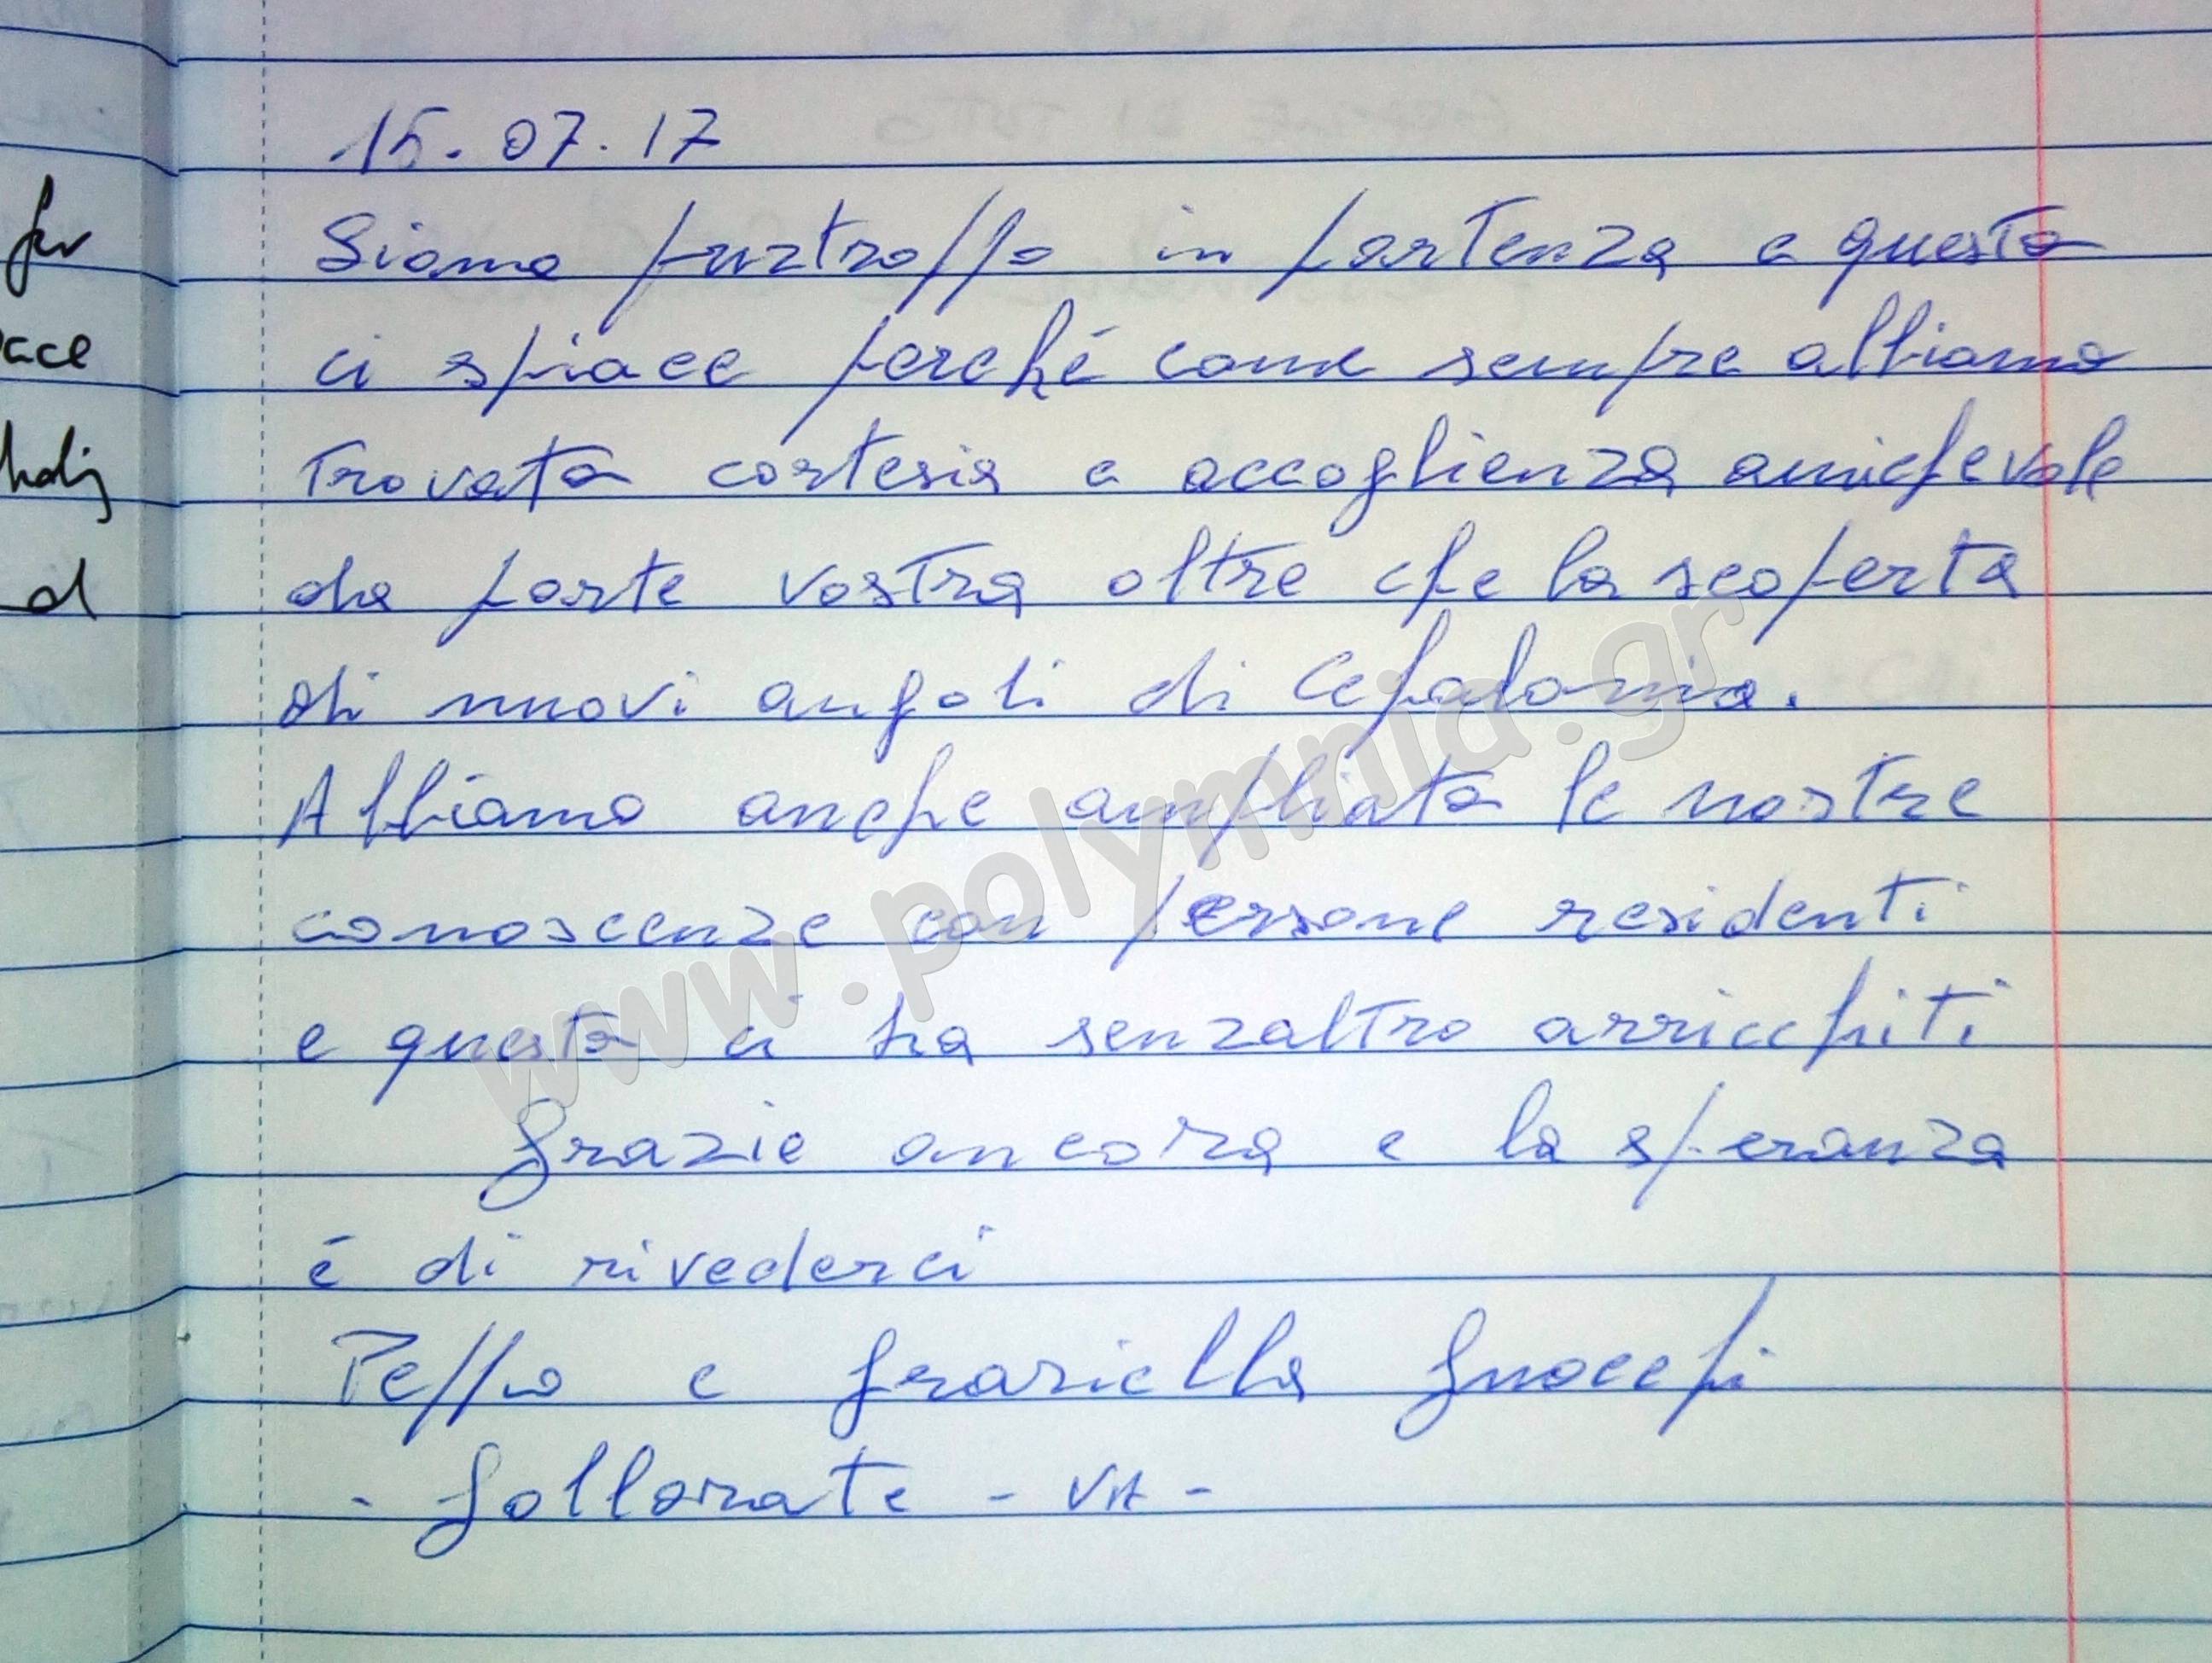 15.07.17
Siamo purtroppo in partenza e questo
ci spiace perché come sempre abbiamo
trovato cortesia e accoglienza amichevole
da parte vostra oltre che la scoperta
di nuovi angoli di Cefalonia.
Abbiamo anche ampliato le nostre
conoscenze con persone residenti
e questo ci ha senzaltro arricchiti
Grazie ancora e la speranza
é di rivederci
Peppo e Graziella Gnocchi
- Gallarate - VA -
www.polymnia.gr